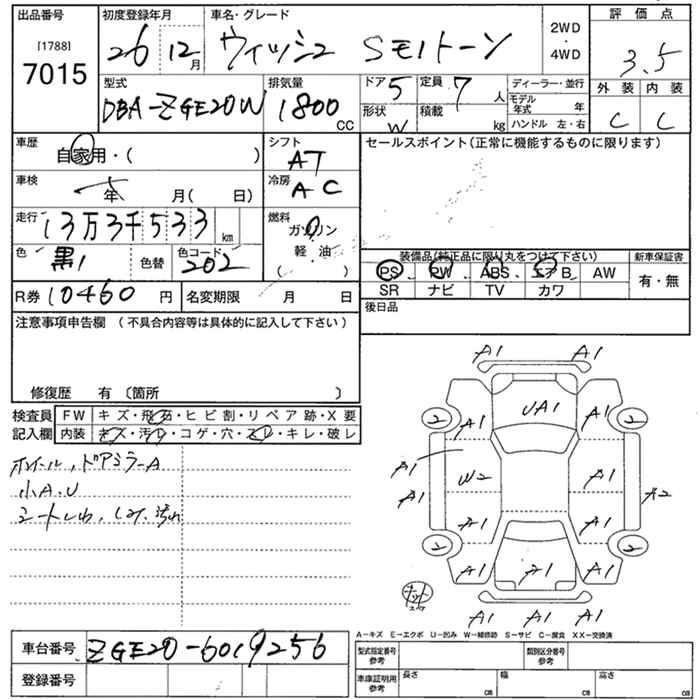 出品番号 初度登録年月 車名・グレード 2WD・4WD 評価点
[1788]
7015 26 12月 ウィッシュ Sモノトーン 3.5
型式 排気量 ドア 5 定員 7人 ディーラー・並行 外装 内装
DBA-ZGE20W 1800CC 形状 W 積載 kg モデル年式 年 C C
ハンドル 左・右
車歴 シフト セールスポイント(正常に機能するものに限ります)
自家用・( ) AT
車検 年 月( 日) 冷房 AC
走行 13万3千533km 燃料
ガソリン
色 黒 色替 色コード 202 軽・油
( )
装備品(純正品に限り丸をつけて下さい) 新車保証書
PS PW ABS エアB AW 有・無
SR ナビ TV カワ
R券 10460円 名変期限 月 日 後日品
注意事項申告欄(不具合内容等は具体的に記入して下さい)
修復歴 有〔箇所 〕
検査員 FW キズ・飛石・ヒビ割・リペア跡・X要
記入欄 内装 キズ・汚れ・コゲ・穴・スレ・キレ・破レ
ホイール,ドアミラーA
小A.U
シートしわ,しみ,汚れ
A1 A1
2 A1 UA1 A1 2
A1 W2 A1
A1 A2
A1 A1
2 2
A1 A1 A1
A1 A1 A1
A-キズ E-エクボ U-凹み W-補修跡 S-サビ C-腐食 XX-交換済
車台番号 ZGE20-6019256
登録番号
型式指定番号 参考 類別区分番号 参考
車庫証明用 参考 長さ cm 幅 cm 高さ cm